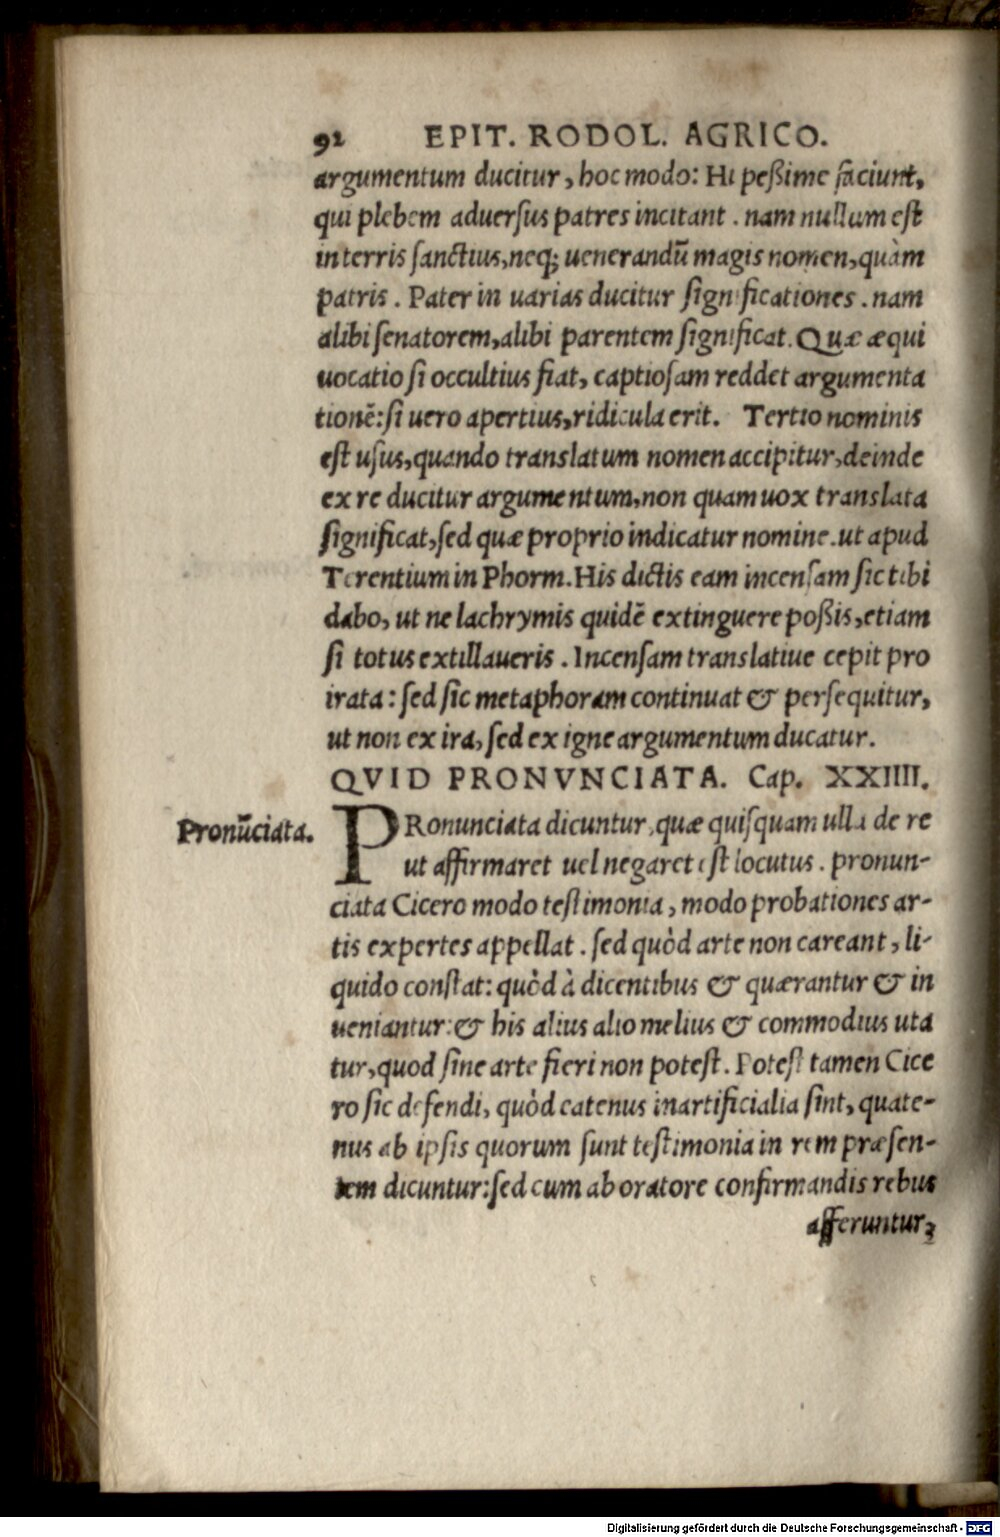 92 EPIT. RODOL. AGRICO.
argumentum ducitur, hoc modo: Hi peßime faciunt,
qui plebem aduerſus patres incitant. nam nullum eſt
in terris ſanctius, neq; uenerandũ magis nomen, quàm
patris. Pater in uarias ducitur ſignificationes. nam
alibi ſenatorem, alibi parentem ſignificat. Quæ æqui
uocatio ſi occultius fiat, captioſam reddet argumenta
tionẽ: ſi uero apertius, ridicula erit. Tertio nominis
eſt uſus, quando translatum nomen accipitur, deinde
ex re ducitur argumentum, non quam uox translata
ſignificat, ſed quæ proprio indicatur nomine. ut apud
Terentium in Phorm. His dictis eam incenſam ſic tibi
dabo, ut ne lachrymis quidẽ extinguere poßis, etiam
ſi totus extillaueris. Incenſam translatiue cepit pro
irata: ſed ſic metaphoram continuat & perſequitur,
ut non ex ira, ſed ex igne argumentum ducatur.
QVID PRONVNCIATA. Cap. XXIIII.
Pronũciata.
PRonunciata dicuntur, quæ quiſquam ulla de re
ut affirmaret uel negaret eſt locutus. pronun-
ciata Cicero modo teſtimonia, modo probationes ar-
tis expertes appellat. ſed quòd arte non careant, li-
quido conſtat: quòd à dicentibus & quærantur & in
ueniantur: & his alius alio melius & commodius uta
tur, quod ſine arte fieri non poteſt. Poteſt tamen Cice
ro ſic defendi, quòd eatenus inartificialia ſint, quate-
nus ab ipſis quorum ſunt teſtimonia in rem præſen-
tem dicuntur: ſed cum ab oratore confirmandis rebus
afferuntur,
Digitalisierung gefördert durch die Deutsche Forschungsgemeinschaft - DFG